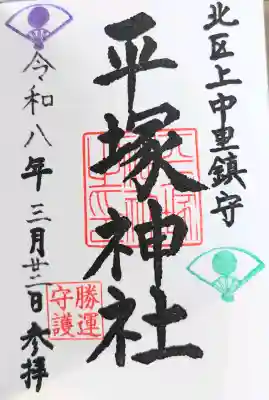 北区上中里鎮守
平塚神社
勝運
守護
令和八年三月廿二日参拝